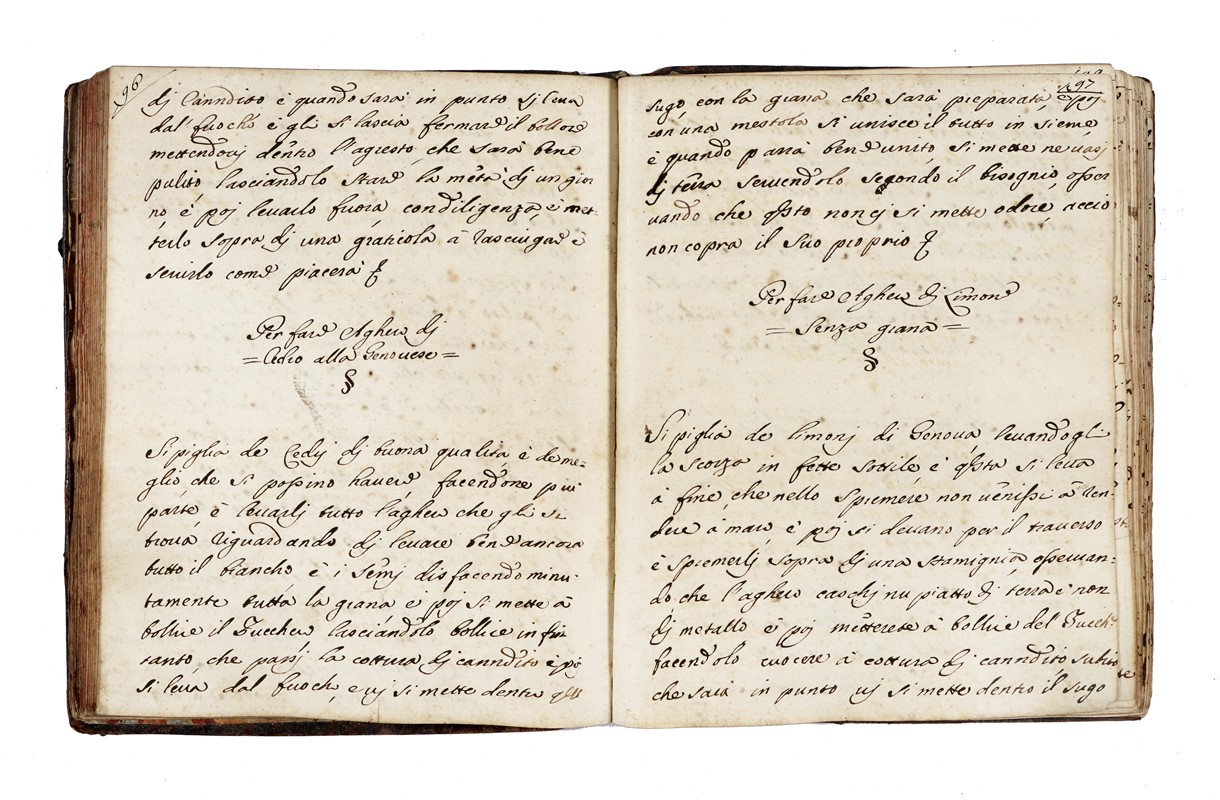 96
dj Canndito è quando sarà in punto si leva
dal fuocho è gli si lascia fermare il bollore
mettendocj dentro l'agresto, che sarà bene
pulito lasciandolo stare la metà dj un gior
no, è poj levarlo fuora con diligenza, è met-
terlo sopra dj una graticola à rasciugare è
servirlo come piacerà
Per fare Aghero dj
= Cedro alla Genovese =
§
Si piglia de Cedrj dj buona qualità è de me=
glio, che si possino havere facendone più
parte è levarlj tutto l'aghero che gli si
trova riguardando dj levare bene ancora
tutto il biancho è i semj disfacendo minu-
tamente tutta la grana è poj si mette à
bollire il Zucchero lasciandolo bollire in fin
tanto, che passj la cottura dj canndito è poj
si leva dal fuocho, e vj si mette dentro
97
sugo con la grana che sarà preparata, è poj
con una mestola si unisce il tutto in sieme
è quando parrà bene unito, si mette ne vasj
dj terra servendolo secondo il bisognio, osser
vando che qsto non cj si mette odore, acciò
non copra il suo proprio
Per fare Aghero dj Limone
= Senza grana =
§
Si piglia de limonj di Genova levandogli
la scorza in fette sottile è qsta si leva
à fine, che nello spremere non venissi à ren-
dere à maro, è poj si levano per il traverso
è spremerlj sopra dj una stamignia, osservan=
do che l'aghero caschj nu piatto dj terra è non
dj metallo è poj metterete à bollire del Zucchº
facendolo cuocere à cottura dj canndito subito
che sarà in punto vj si mette dentro il sugo